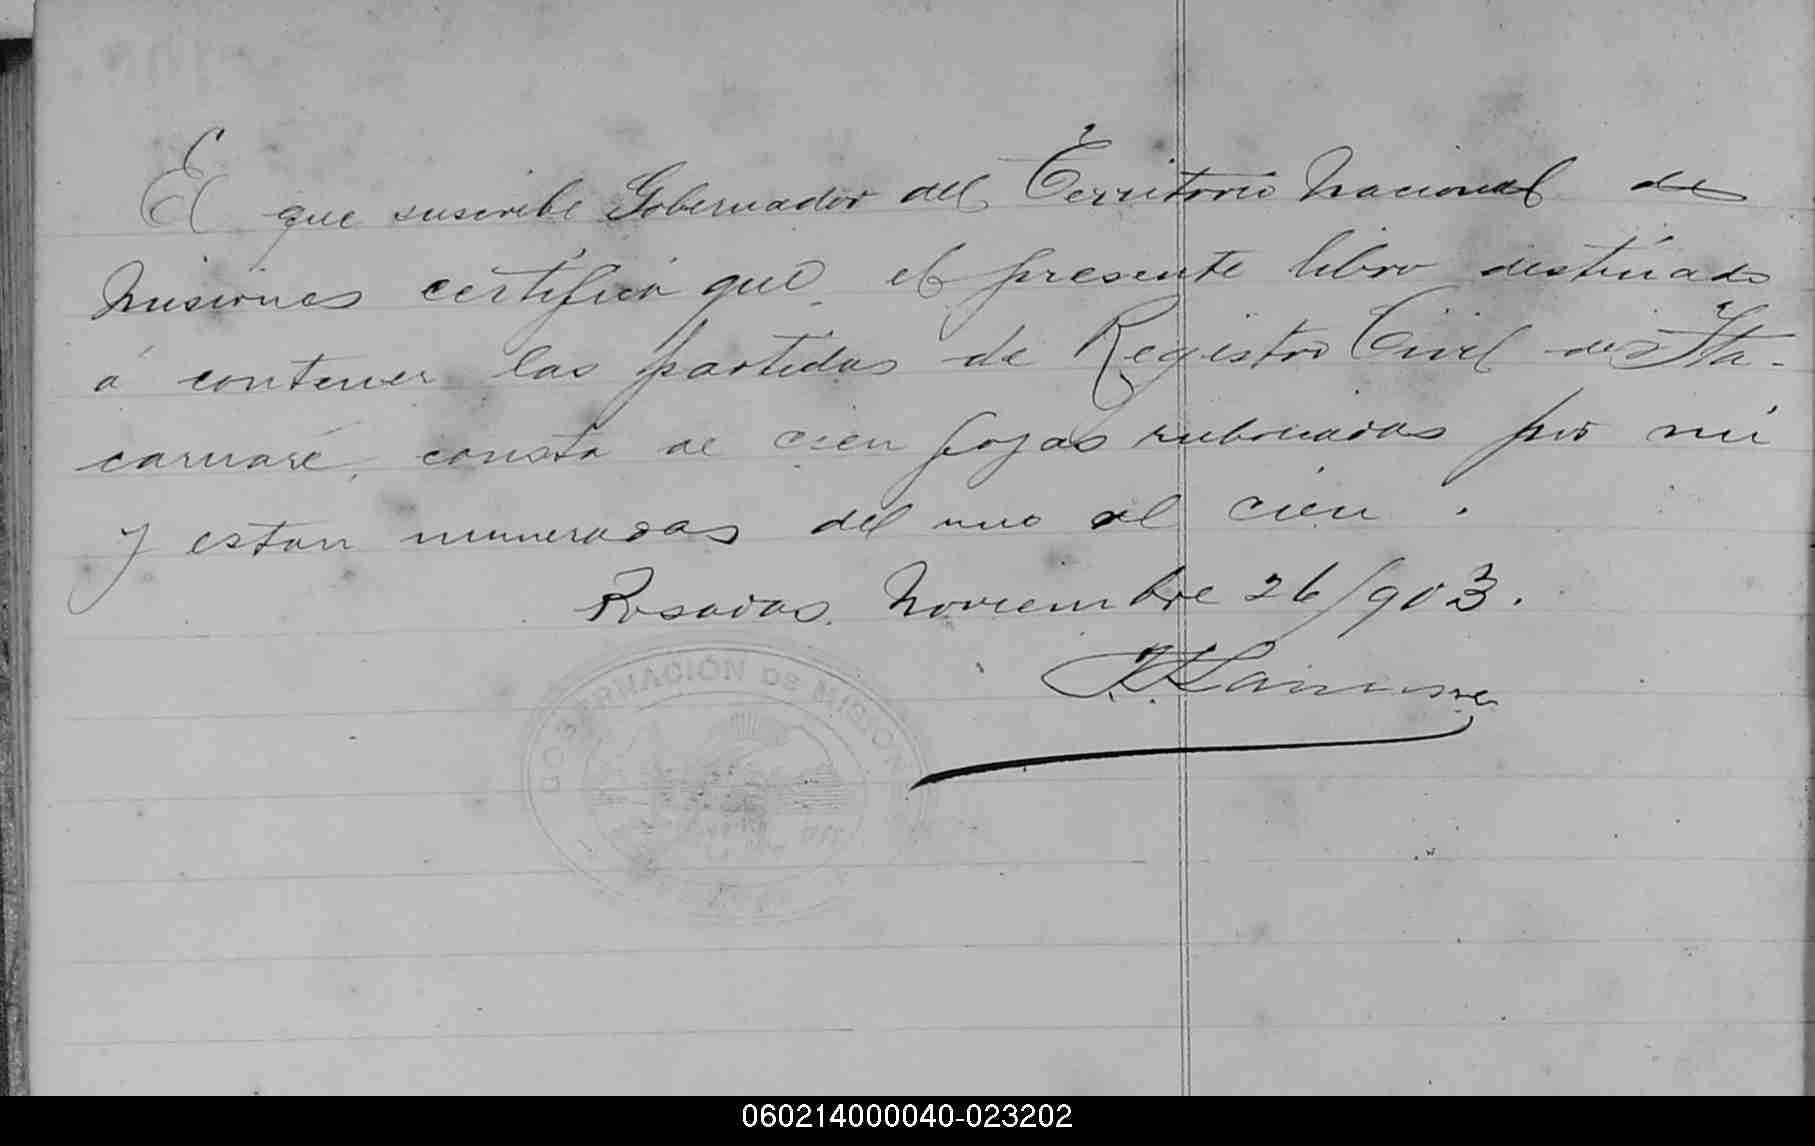 El que suscribe Gobernador del Territorio Nacional de
Misiones certifica que el presente libro destinado
á contener las partidas de Registro Civil de Ita-
caruaré, consta de cien fojas rubricadas por mí
y estan numeradas del uno al cien.
Posadas, Noviembre 26/903.
J. J. Lanusse
GOBERNACIÓN DE MISIONES
060214000040-023202